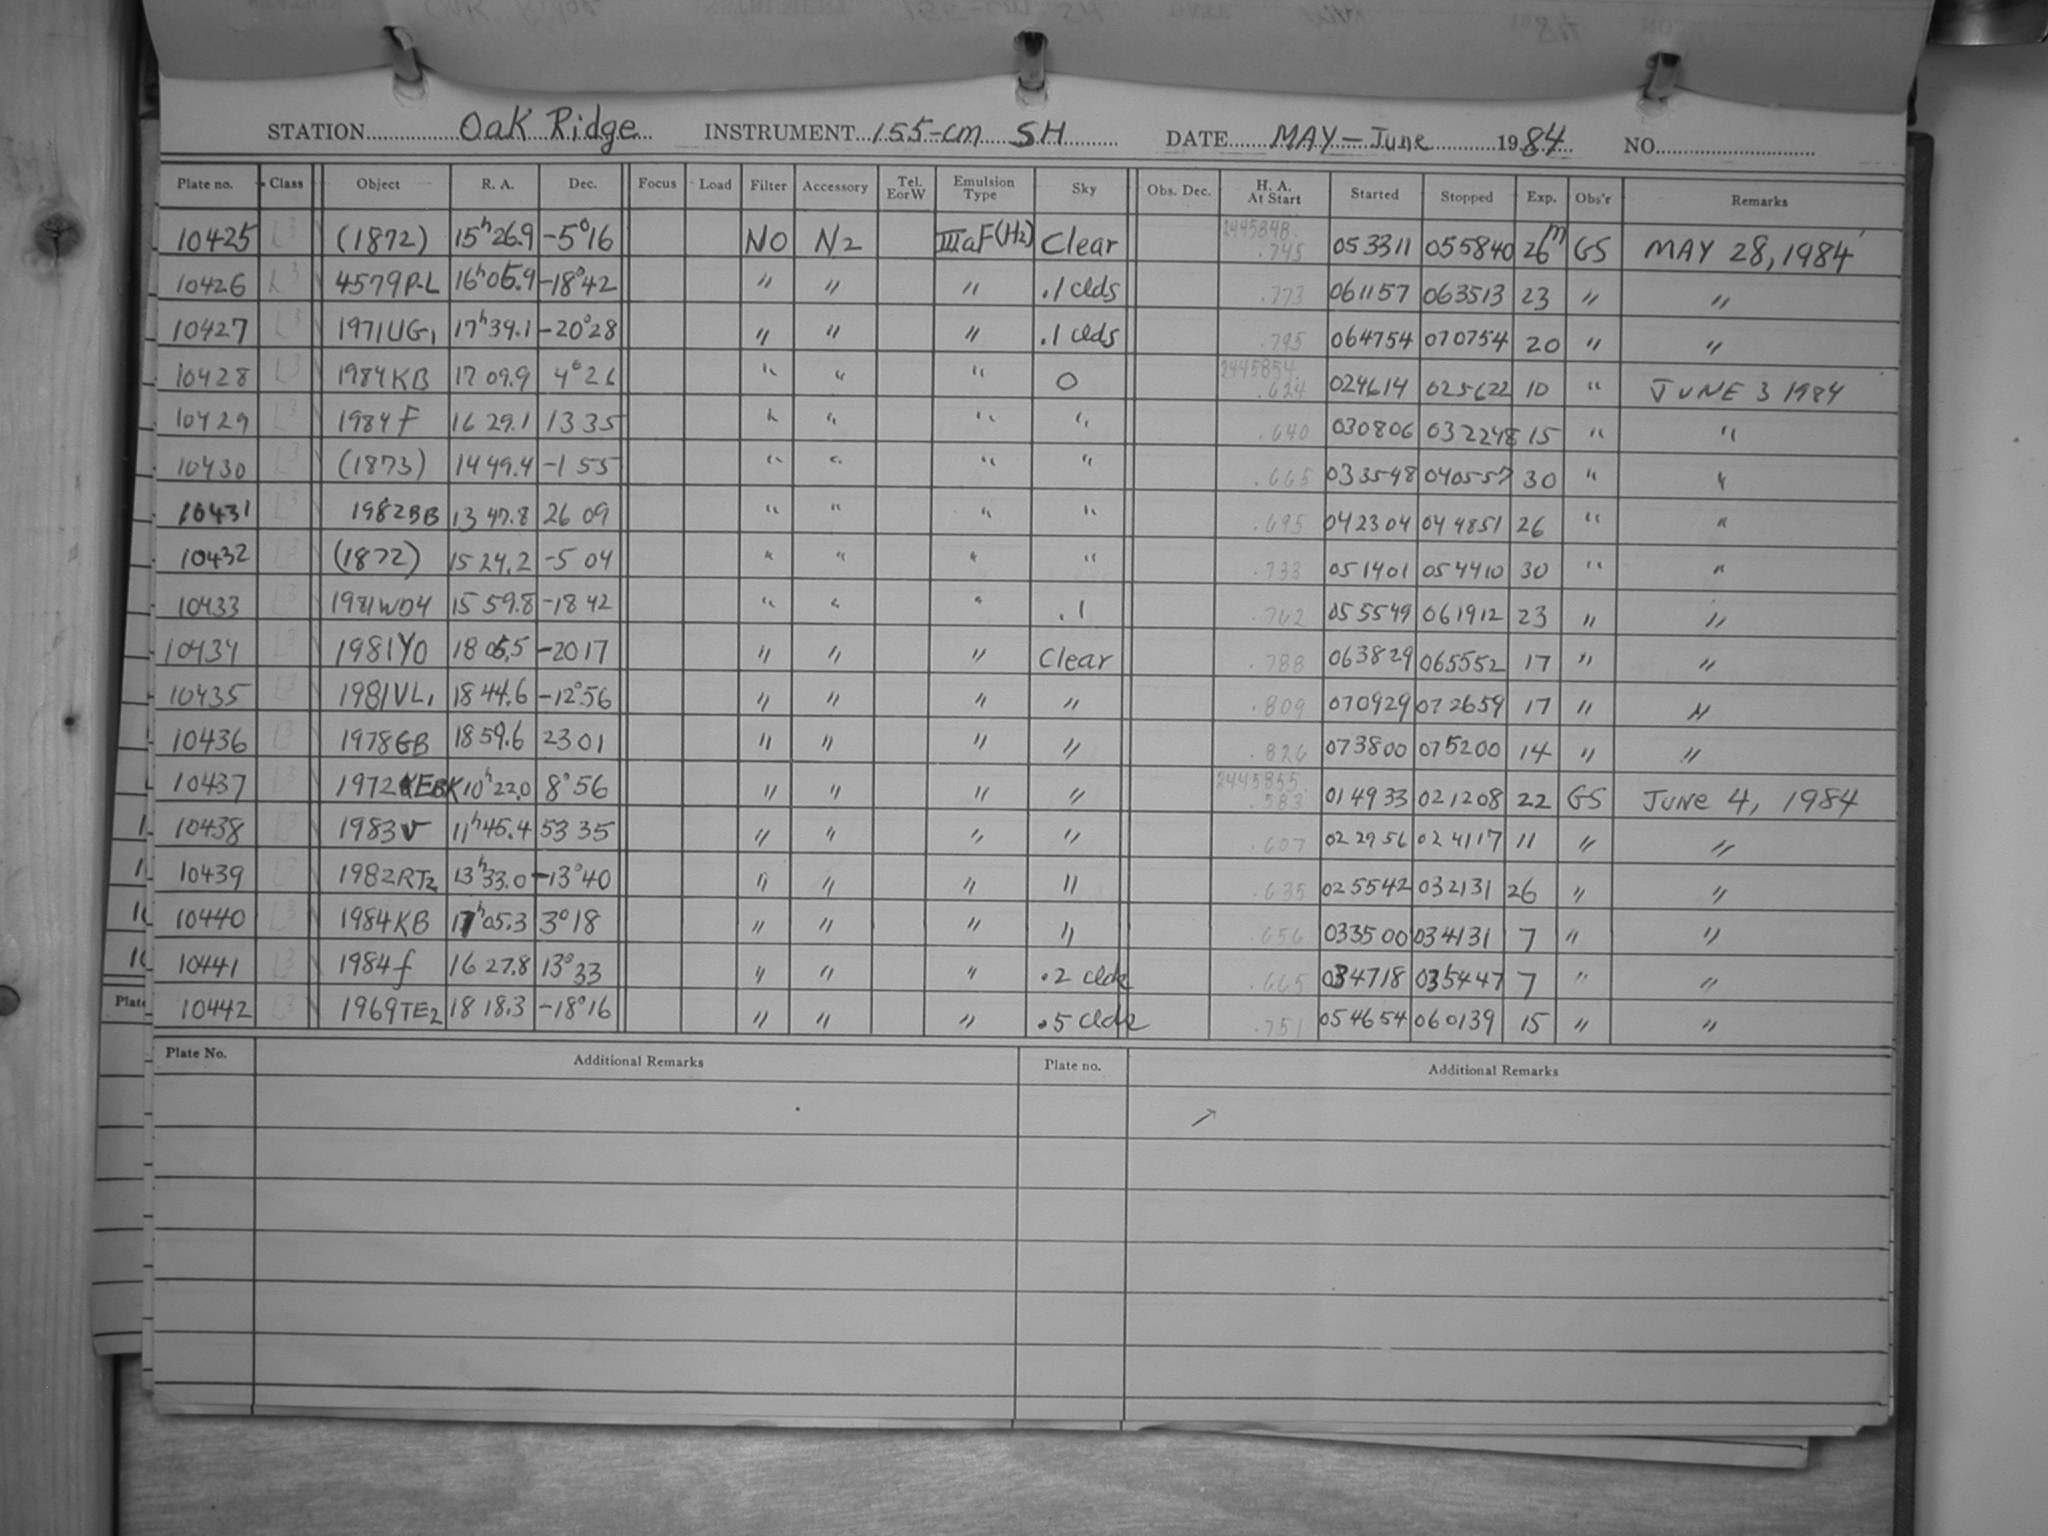 STATION Oak Ridge INSTRUMENT 155-cm SH DATE MAY-June 1984 NO.
Plate no. Class Object R. A. Dec. Focus Load Filter Accessory Tel. EorW Emulsion Type Sky Obs. Dec. H. A. At Start Started Stopped Exp. Obs'r Remarks
10425 L3 (1872) 15h26.9 -5°16 NO N2 IIIaF(H2) Clear 2445848. .745 053311 055840 26m GS MAY 28, 1984
10426 L3 4579P-L 16h05.9 -18°42 " " " .1 clds .773 061157 063513 23 " "
10427 L3 1971UG1 17h39.1 -20°28 " " " .1 clds .795 064754 070754 20 " "
10428 L3 1984KB 17 09.9 4°26 " " " 0 2445854. .624 024614 025622 10 " JUNE 3 1984
10429 L3 1984f 16 29.1 13 35 " " " " .640 030806 032248 15 " "
10430 L3 (1873) 14 49.4 -1 55 " " " " .665 033548 040557 30 " "
10431 L3 1982BB 13 47.8 26 09 " " " " .695 042304 044851 26 " "
10432 L3 (1872) 15 24.2 -5 04 " " " " .733 051401 054410 30 " "
10433 L3 1981WD4 15 59.8 -18 42 " " " .1 .762 055549 061912 23 " "
10434 L3 1981YO 18 05.5 -20 17 " " " Clear .788 063829 065552 17 " "
10435 L3 1981VL1 18 44.6 -12°56 " " " " .809 070929 072659 17 " "
10436 L3 1978GB 18 59.6 23 01 " " " " .826 073800 075200 14 " "
10437 L3 1972 10h22.0 8°56 " " " " 2445855. .583 014933 021208 22 GS JUNE 4, 1984
10438 L3 1983v 11h45.4 53 35 " " " " .607 022956 024117 11 " "
10439 L3 1982RT2 13h33.0 -13°40 " " " " .635 025542 032131 26 " "
10440 L3 1984KB 17h05.3 3°18 " " " " .656 033500 034131 7 " "
10441 L3 1984f 16 27.8 13°33 " " " .2 clds .665 034718 035447 7 " "
10442 L3 1969TE2 18 18.3 -18°16 " " " .5 clds .751 054654 060139 15 " "
Plate No. Additional Remarks Plate no. Additional Remarks